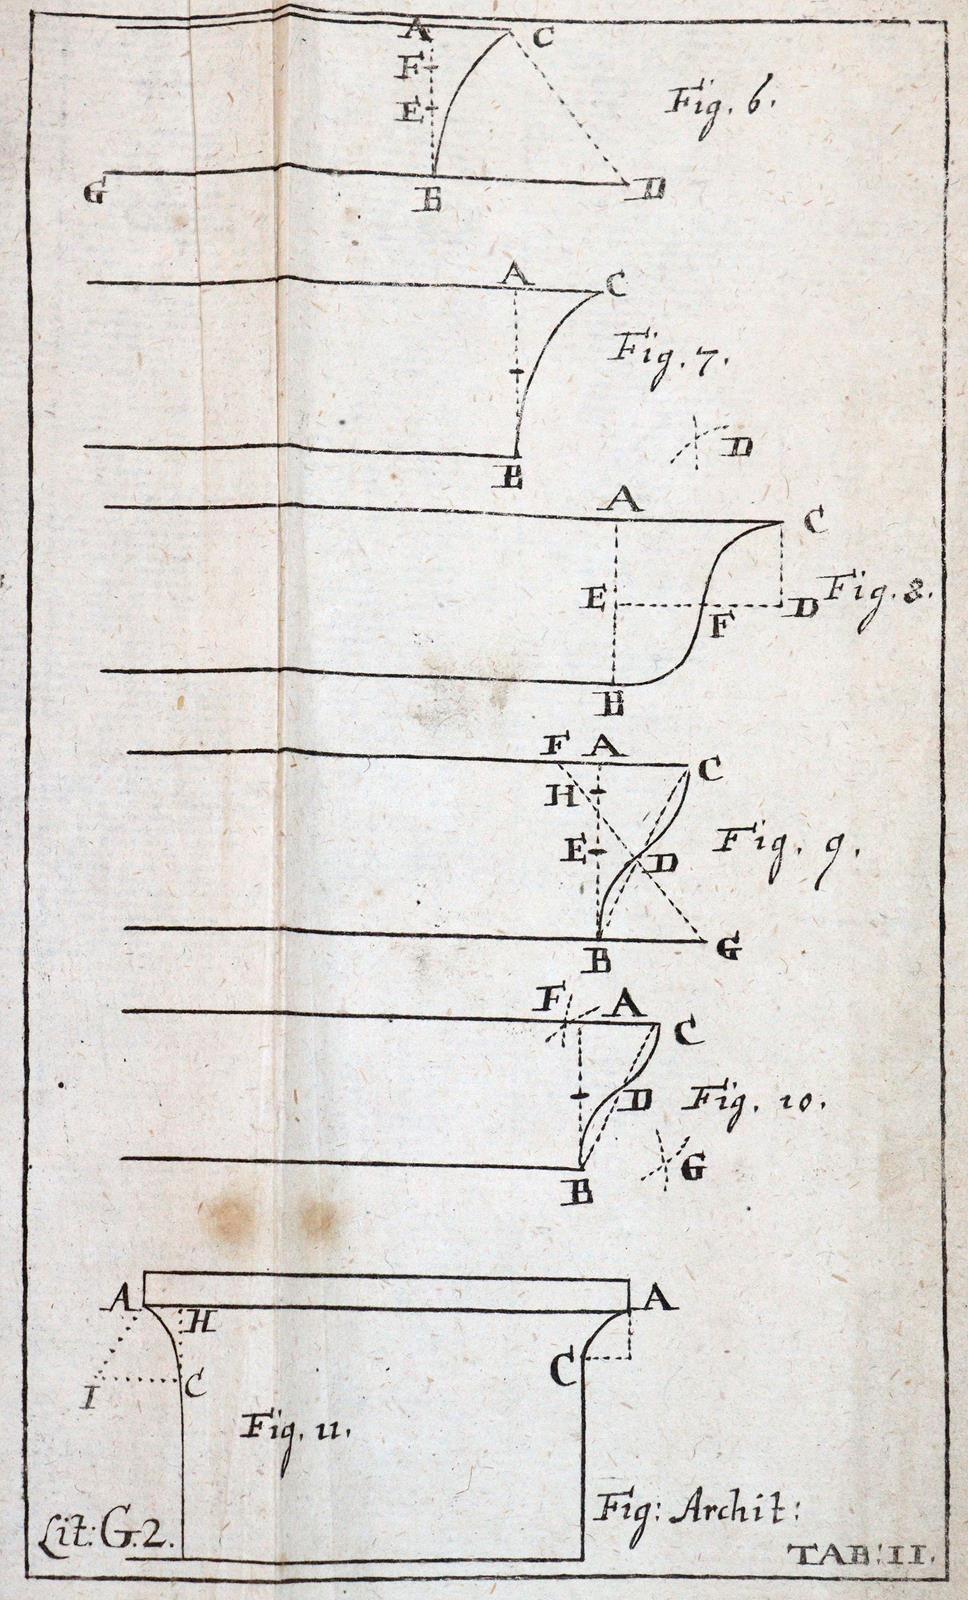 A C
F
E
Fig. 6.
G B D
A C
Fig. 7.
D
B
A C
E F D Fig. 8.
B
F A C
H
E D Fig. 9.
B G
F A C
D Fig. 10.
G
B
A H A
I C C
Fig. 11.
Fig: Archit:
Lit: G.2.
TAB: II.